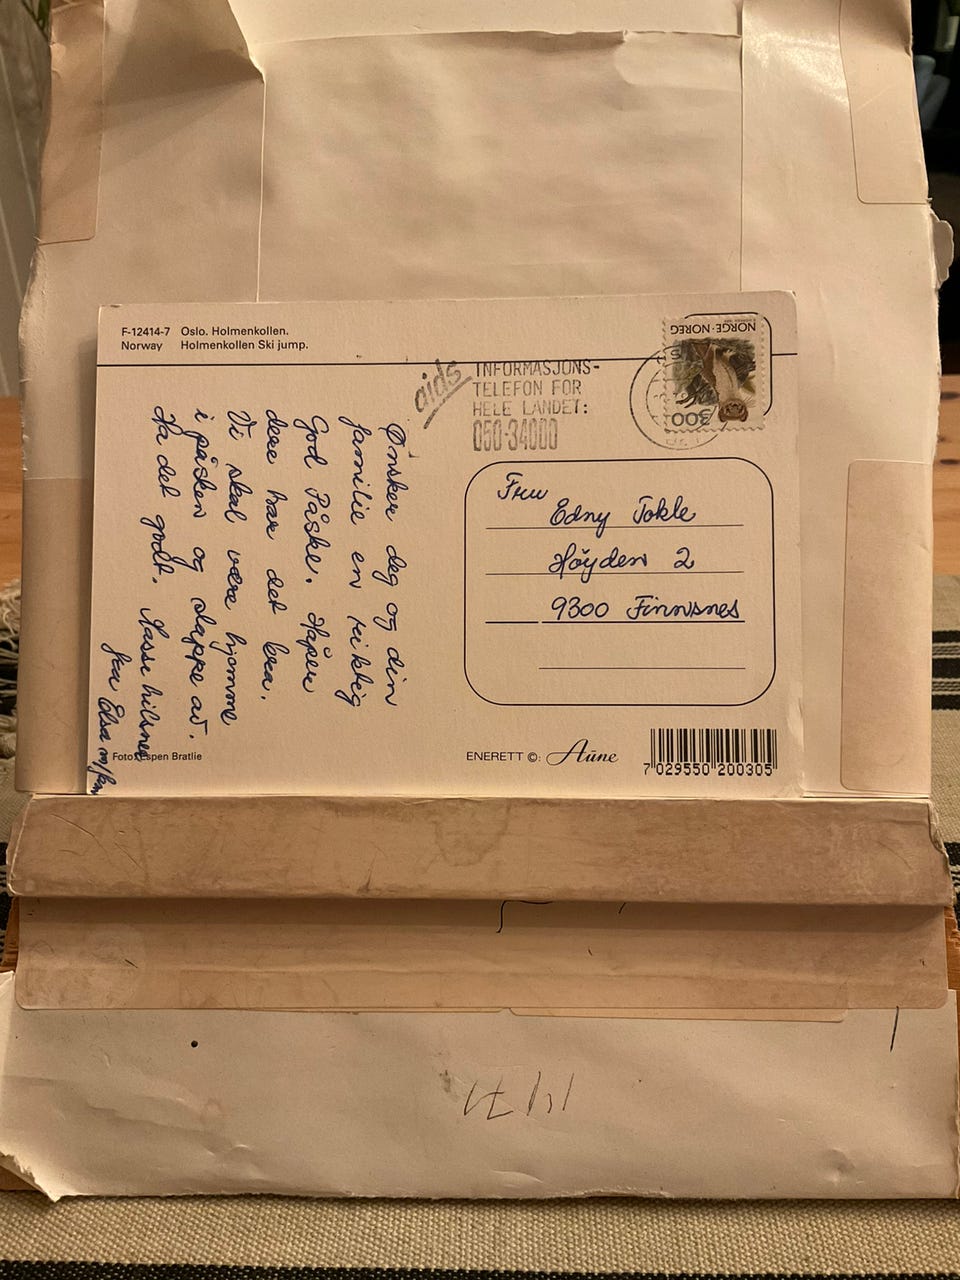 F-12414-7 Oslo. Holmenkollen.
Norway Holmenkollen Ski jump.
NORGE·NOREG
300
aids
INFORMASJONS-
TELEFON FOR
HELE LANDET:
050-34000
Ønsker deg og din
familie en riktig
God Påske. Håper
dere har det bra.
Vi skal være hjemme
i påsken og slappe av.
Ha det godt. Masse hilsner
fra Elsa m/fam
Fru
Edny Tokle
Høyden 2
9300 Finnsnes
Foto: Espen Bratlie
ENERETT ©: Aūne
7 029550 200305